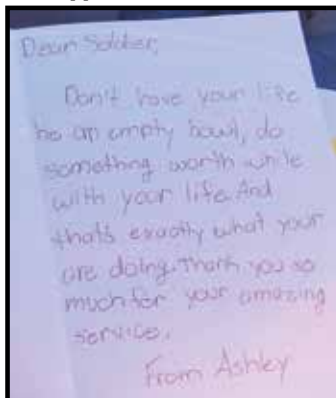 Dear Soldier,
Don't have your life
be an empty bowl, do
something worth while
with your life. And
that's exactly what your
are doing. Thank you so
much for your amazing
service.
From Ashley